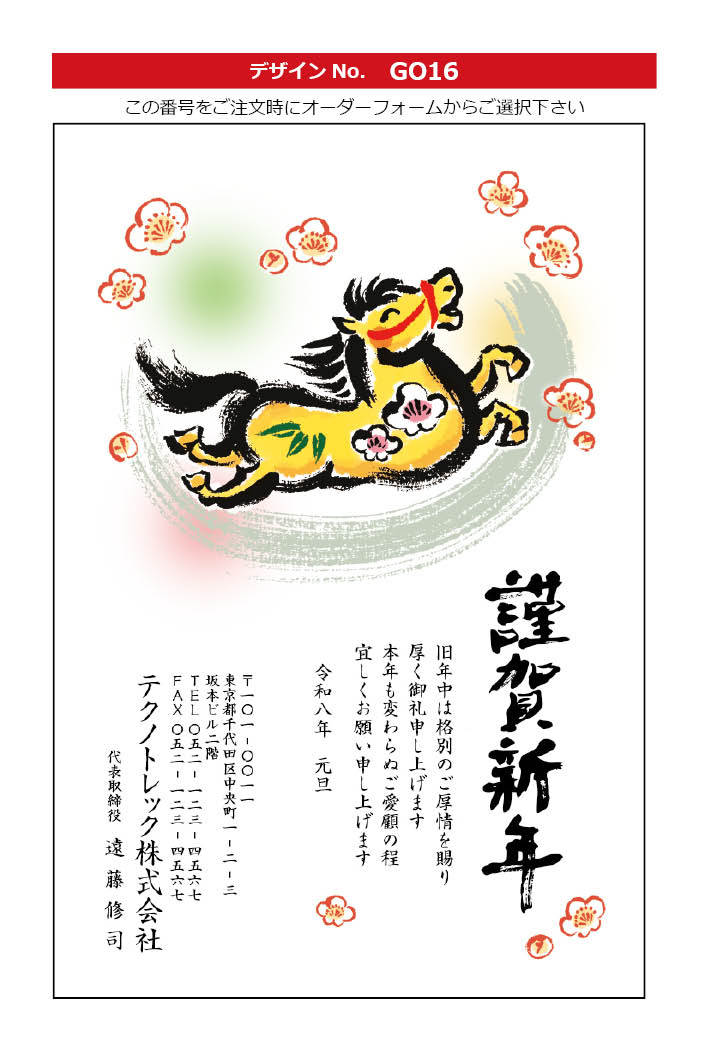 デザインNo. GO16
この番号をご注文時にオーダーフォームからご選択下さい
謹賀新年
旧年中は格別のご厚情を賜り
厚く御礼申し上げます
本年も変わらぬご愛顧の程
宜しくお願い申し上げます
令和八年 元旦
〒一〇一-〇〇一一
東京都千代田区中央町一-二-三
坂本ビル二階
TEL〇五二-一二三-四五六七
FAX〇五二-一二三-四五六七
テクノトレック株式会社
代表取締役 遠藤修司